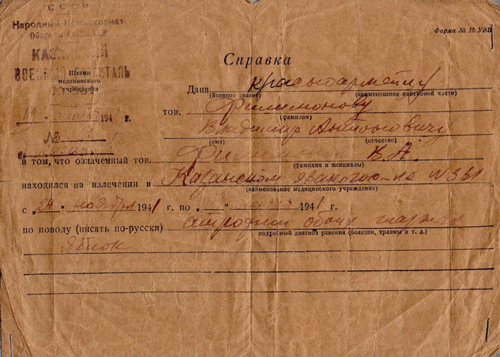 СССР
Народный Комиссариат
Обороны
КАЗАНСКИЙ
ВОЕННЫЙ ГОСПИТАЛЬ
Штамп
медицинского
учреждения
194
№
Форма № 16 УВВ
Справка
Дана красноармейцу
(воинское звание) (наименование войсковой части)
тов. Филимонову
(фамилия)
Владимир Антонович
(имя) (отчество)
в том, что означенный тов. В. А.
(фамилия и инициалы)
находился на излечении в Казанском эвакогос-ле № 361
(наименование медицинского учреждения)
с 24 ноября 1941 г. по 1941 г.
по поводу (писать по-русски) обоих глазных
подробный диагноз ранения (болезни, травмы и т. д.)
яблок